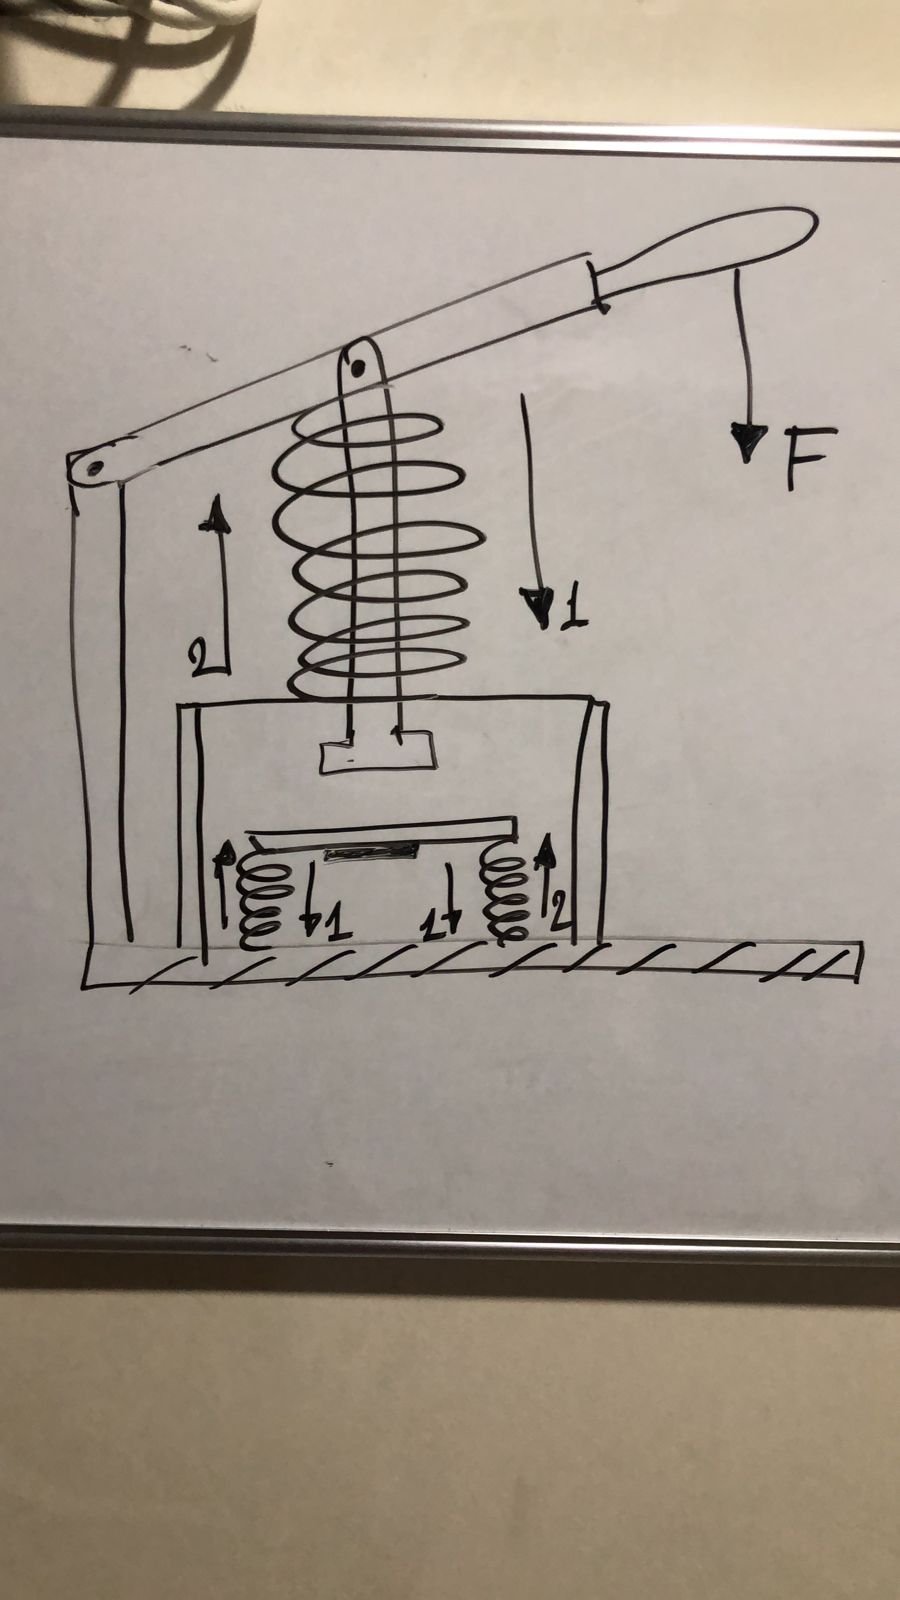 F
1
2
1
1
2